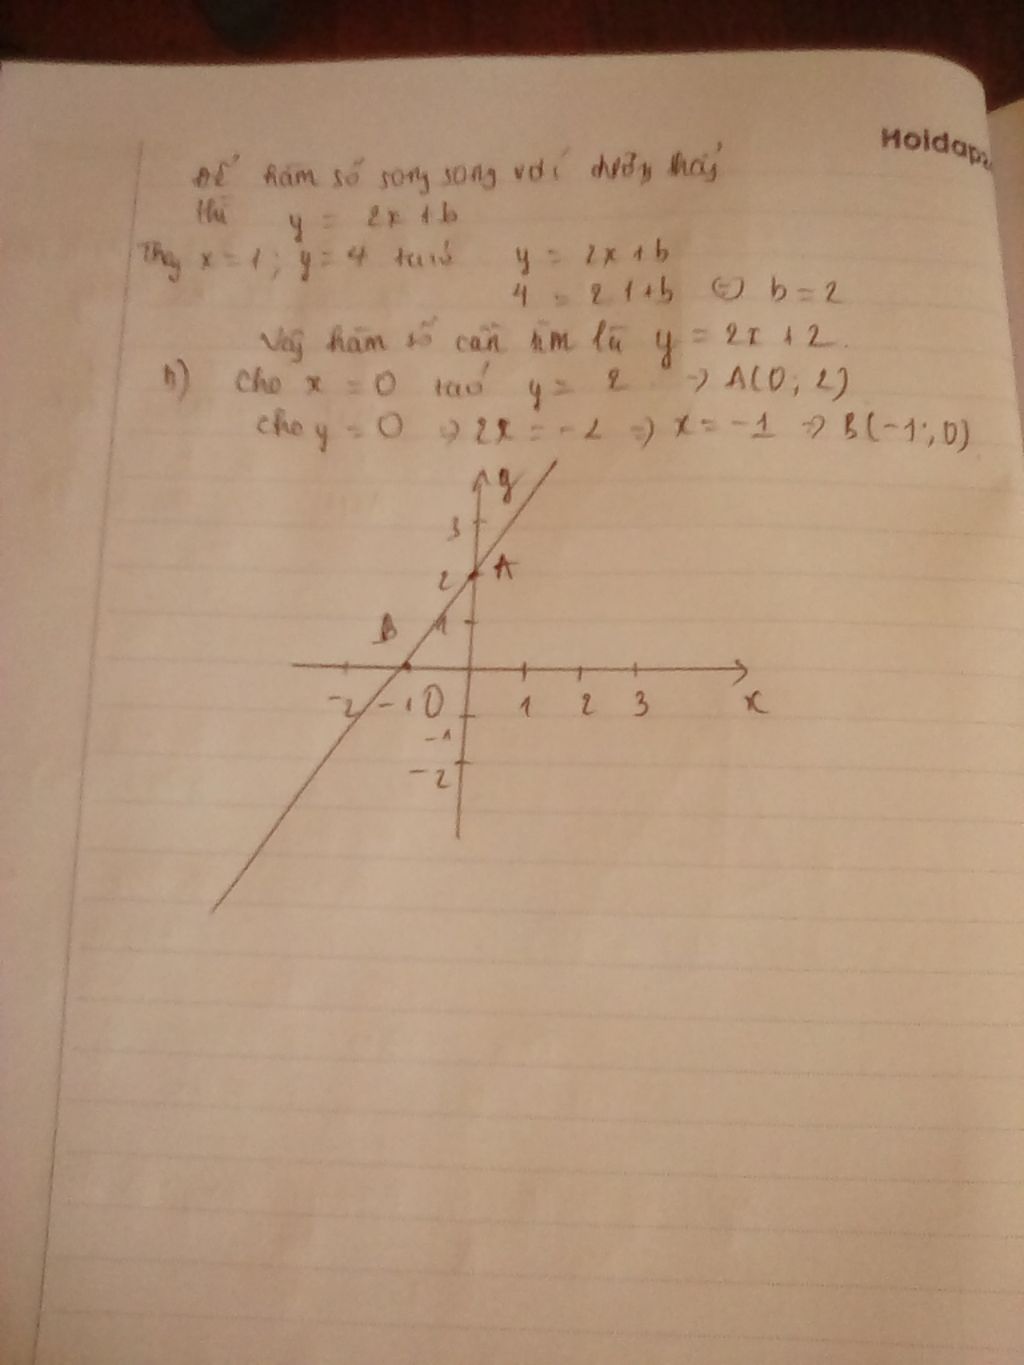 Hoidap
Để hàm số song song với đường thẳng
thì y = 2x + b
Thay x = 1; y = 4 ta có y = 2x + b
4 = 2 1 + b ⇔ b = 2
Vậy hàm số cần tìm là y = 2x + 2.
b) cho x = 0 ta có y = 2 → A(0; 2)
cho y = 0 ⇒ 2x = -2 ⇒ x = -1 ⇒ B(-1; 0)
y
3
2 A
B 1
-2 -1 0 1 2 3 x
-1
-2